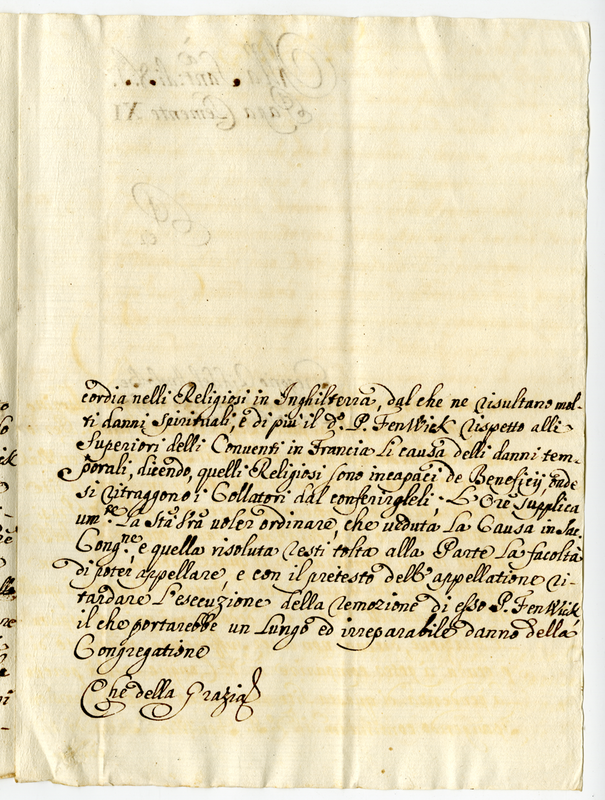 cordia nelli Religiosi in Inghilterra, dal che ne risultano mol-
ti danni spirituali, e di più il dº. P. FenWick rispetto alli
Superiori delli Conventi in Francia li causa delli danni tem-
porali, dicendo, quelli Religiosi sono incapaci de Beneficij, onde
si ritraggono i Collatori dal conferirgleli. L'Ore supplica
umre. La Stà Vrã voler ordinare, che veduta La Causa in Sac.
Congne. e quella risoluta resti tolta alla Parte La facoltà
di poter appellare, e con il pretesto dell'appellatione ri-
tardare L'esecuzione della remozione di esso P. FenWick,
il che portarebbe un Lungo ed irreparabile danno della
Congregatione
Che della Grazia